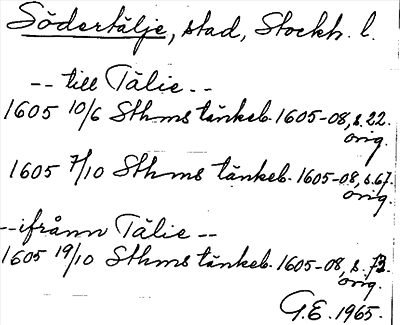 Södertälje, stad, Stockh. l.
-- till Tälie --
1605 10/6 Sthms tänkeb. 1605-08, s. 22.
orig.
1605 7/10 Sthms tänkeb. 1605-08, s. 67.
orig.
-- ifrånn Tälie --
1605 19/10 Sthms tänkeb. 1605-08, s. 73.
orig.
G.E. 1965.